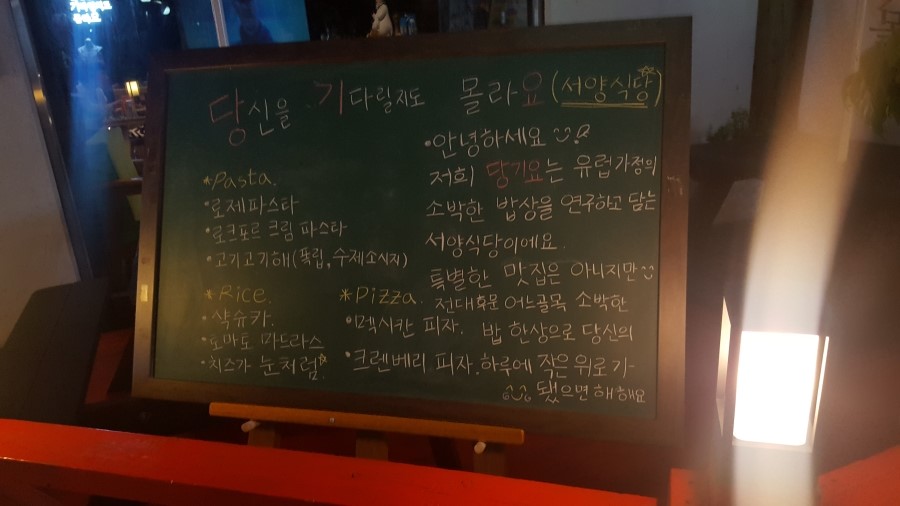 당신을 기다릴지도 몰라요 (서양식당)
*Pasta.
•로제파스타
•로크포르 크림 파스타
•고기고기해(폭립, 수제소시지)
*Rice.
•샥슈카.
•토마토 마드라스
•치즈가 눈처럼
*Pizza.
•멕시칸 피자.
•크렌베리 피자.
•안녕하세요
저희 당기요는 유럽가정의
소박한 밥상을 연구하고 담는
서양식당이에요.
특별한 맛집은 아니지만
전대후문 어느골목 소박한
밥 한상으로 당신의
하루에 작은 위로가
됐으면 해해요